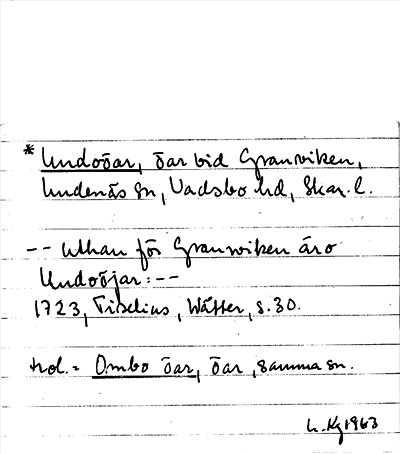 * Undoöar, öar vid Granviken,
Undenäs sn, Vadsbo hd, Skar. l.
-- uthan för Granwiken äro
Undoöjar: --
1723, Tiselius, Wätter, s. 30.
Ombo öar, öar, samma sn.
1963